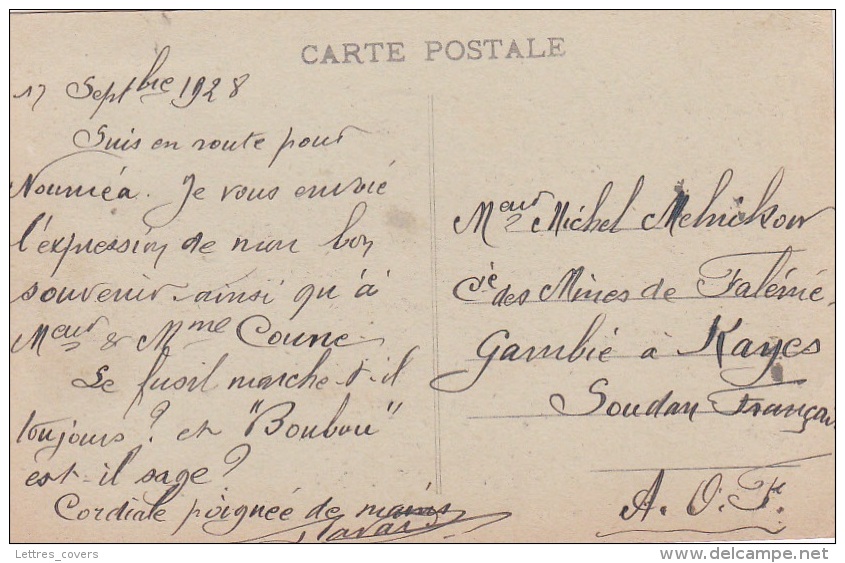 CARTE POSTALE
17 Septbre 1928
Suis en route pour
Nouméa. Je vous envoie
l'expression de mon bon
souvenir ainsi qu'à
Meur & Mme Coune.
Le fusil marche-t-il
toujours? et "Boubou"
est-il sage?
Cordiale poignée de mains
Meur Michel Melnikow
Cie des Mines de Falémé
Gambie à Kayes
Soudan Français
A. O. F.
Lettres_covers
delcampe.net